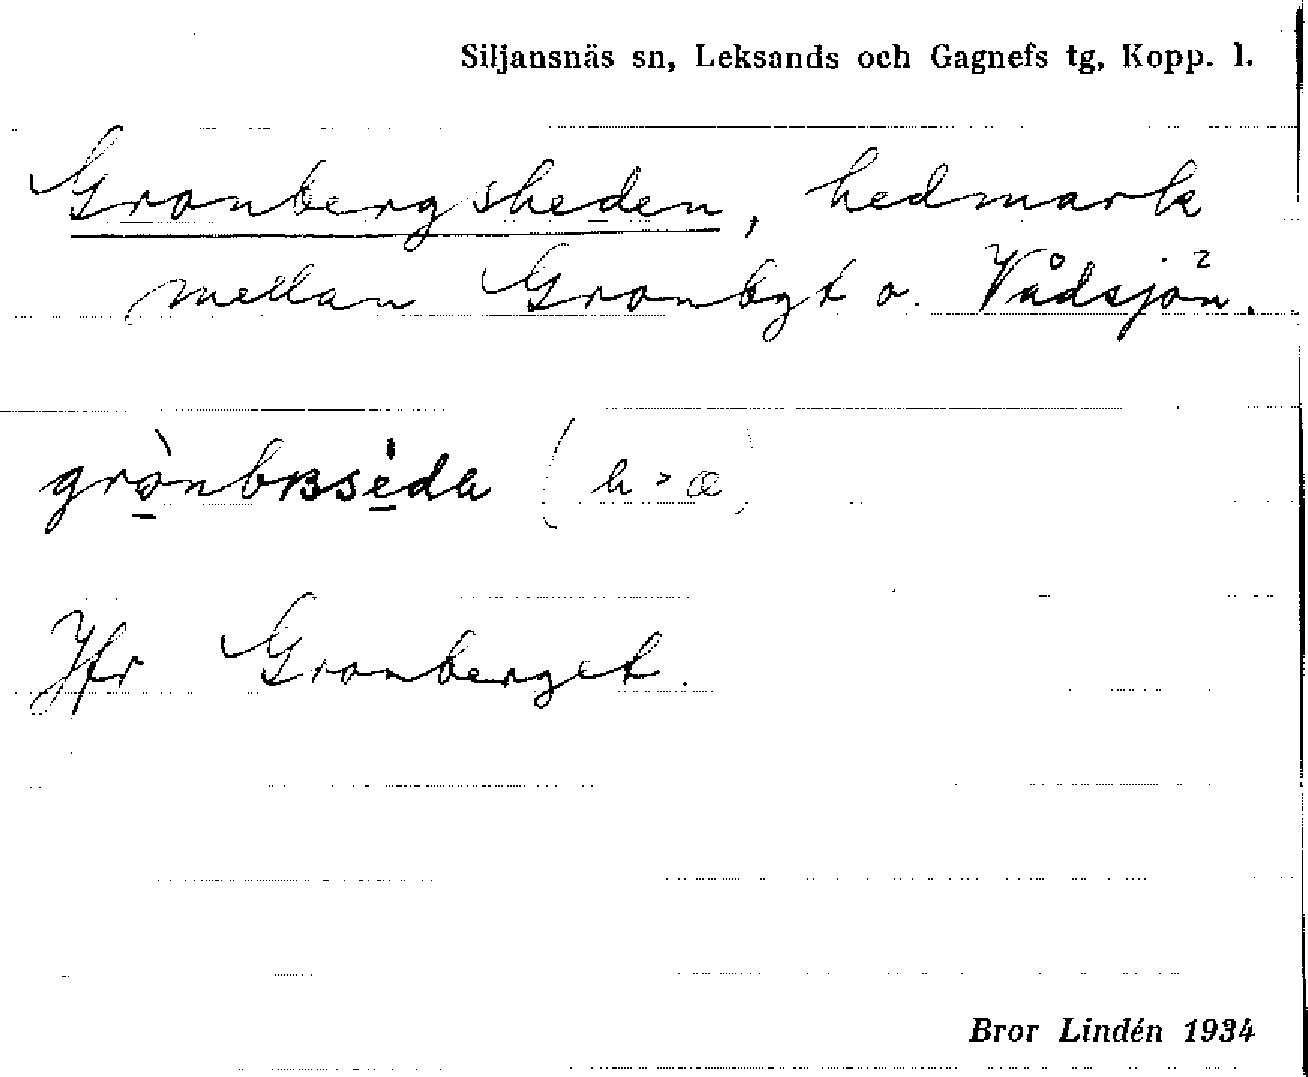 Siljansnäs sn, Leksands och Gagnefs tg, Kopp. l.
Gronbergsheden, hedmark
mellan Gronbgt o. Vådsjön.
(a > œ)
Jfr Gronberget.
Bror Lindén 1934